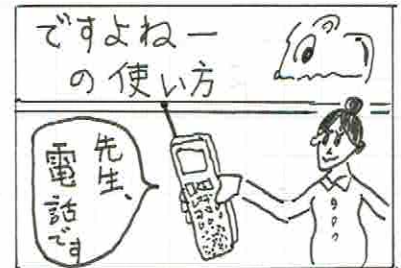 ですよねー
の使い方
先生、
電話です